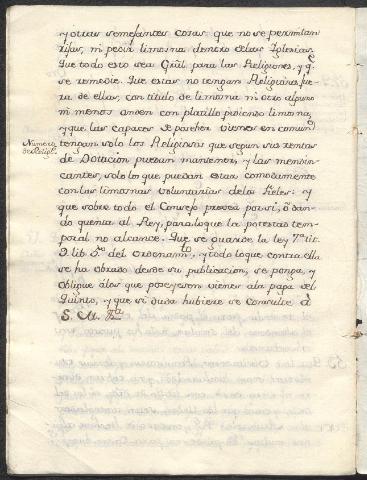 y otras semejantes cosas: que no se permitan
rifas, ni pedir limosna dentro de las Iglesias.
Que todo esto sea Gral para las Religiones, y qe
se remedie. Que estas no tengan Religiosos fue-
ra de ellas, con titulo de limosna ni otro alguno
ni menos anden con platillo pidiendo limosna,
y que las capaces de poseher vienes en comun,
Numero
de Religs.
tengan solo los Religiosos que segun sus rentas
de Dotacion puedan mantener, y las mendi-
cantes, solo los que puedan estar comodamente
con las limosnas voluntarias de los Fieles: y
que sobre todo el Consejo provea por si, ò dan-
do quenta al Rey, para lo que la potestad tem-
poral no alcance. Que se guarde la ley 7ª. tit.
9. lib. 5º. del ordenamto. y todo lo que contra ella
se ha obrado desde su publicacion, se ponga, y
obligue à los que poseyeren vienes à la paga del
Quinto, y que si duda hubiere se Consulte à
S. M.